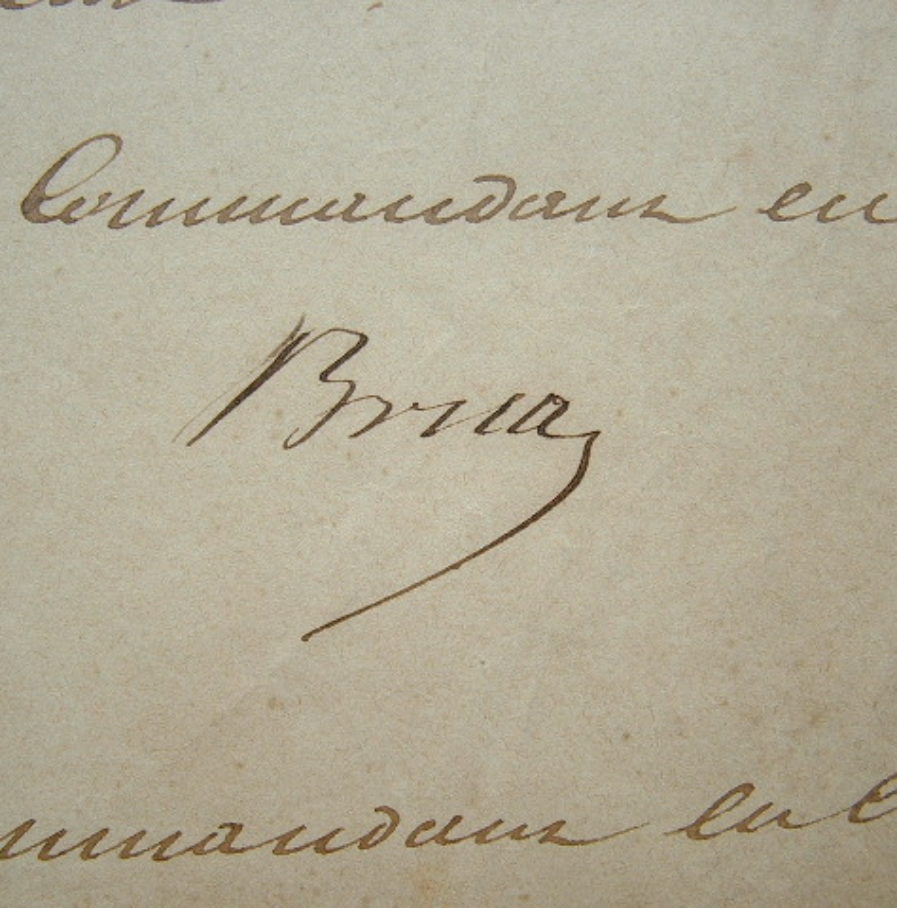 Commandant en
Bruat
ommandant en